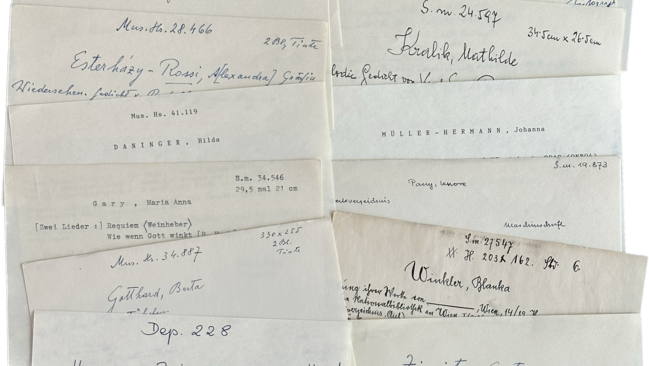 Mus. Hs. 28.466
2 Bl, Tinte
Esterházy-Rossi, A[lexandra] Gräfin
Wiedersehen. Gedicht v.
Mus. Hs. 41.119
DANINGER, Hilda
S.m. 34.546
29,5 mal 21 cm
Gary, Maria Anna
[Zwei Lieder:] Requiem (Weinheber)
Wie wenn Gott winkt
330 x 255
2 Bl.
Tinte
Mus. Hs. 34.887
Gotthard, Berta
Dep. 228
S.m. 24.597
34·5cm x 26·5cm
Kralik, Mathilde
Gedicht von
MÜLLER-HERMANN, Johanna
S.m. 19.873
Pany, Leonore
Maschinschrift
S.m. 27547
H 203 162. 6.
Winkler, Blanka
ihrer Werke
Nationalbibliothek in Wien